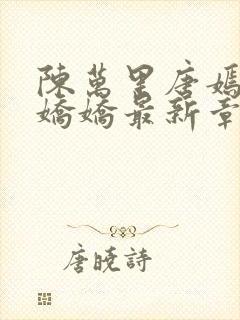 陳萬里唐嫣
嬌嬌最新章
唐曉詩